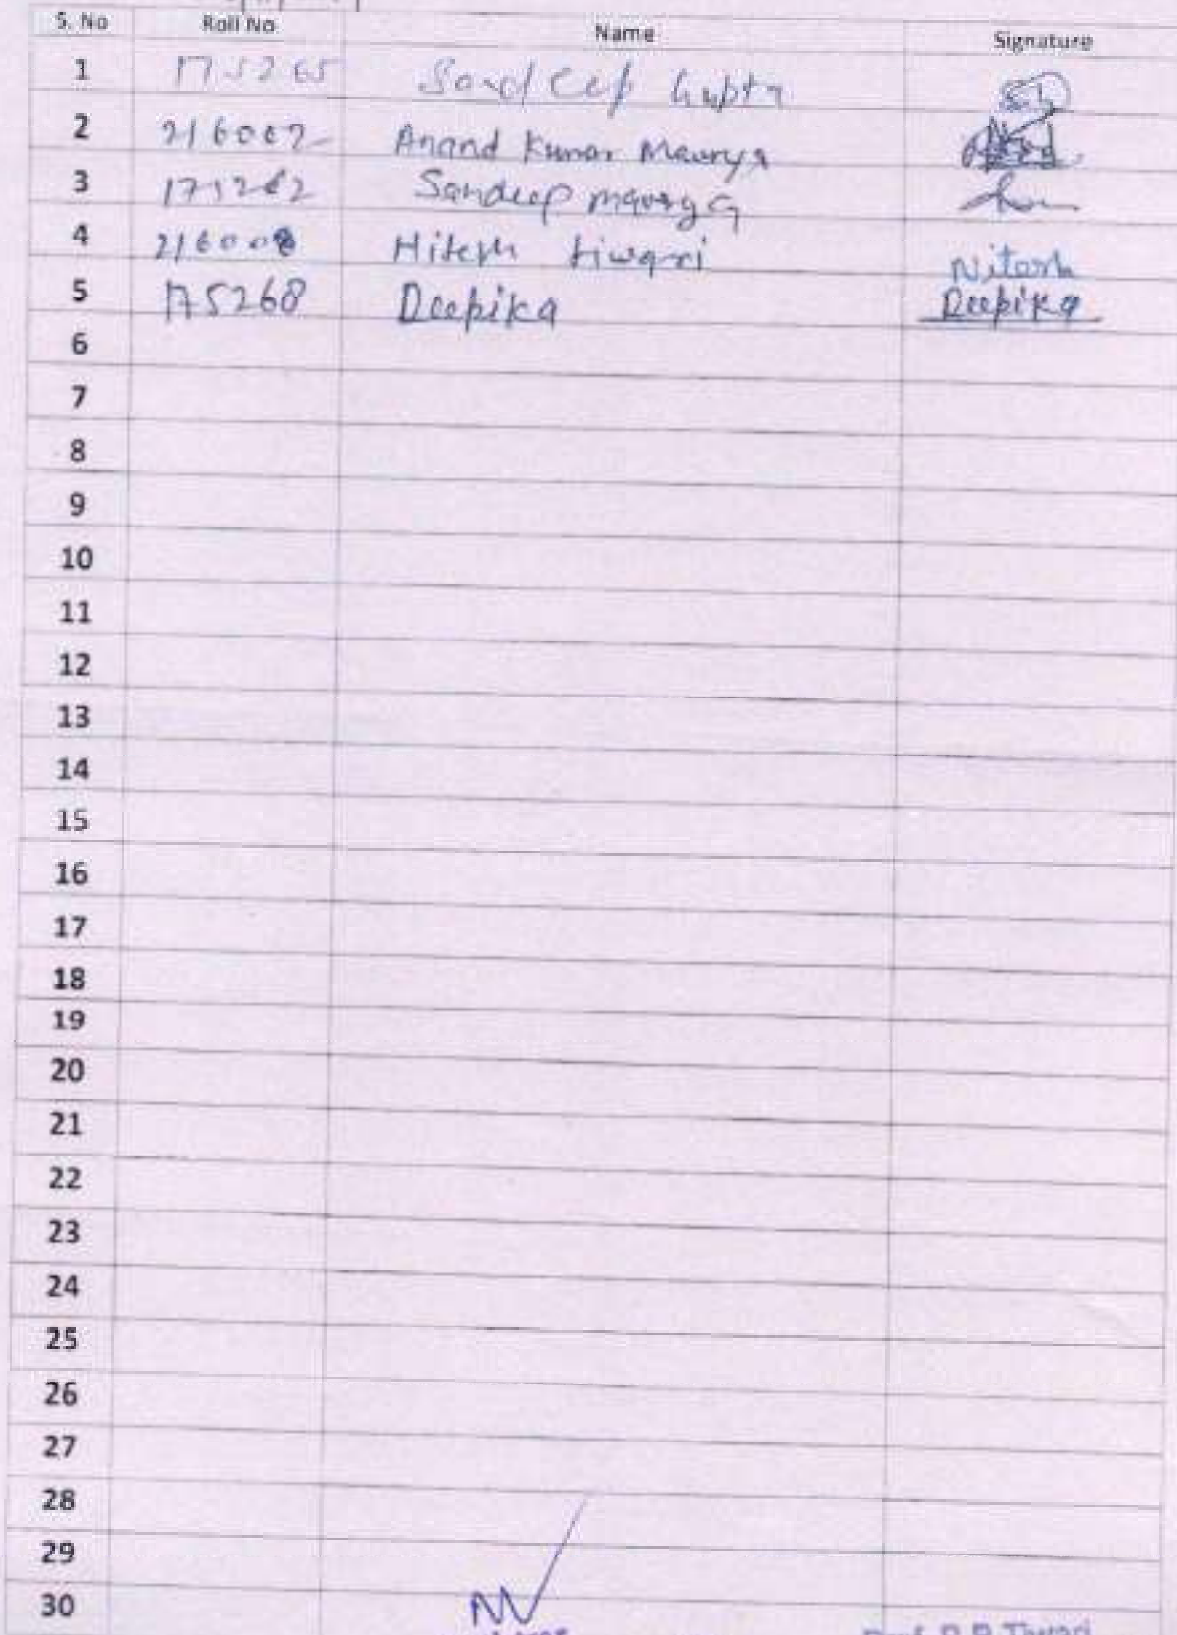 S. No Roll No Name Signature
1 175265 Sandeep Gupta
2 216002 Anand Kumar Maurya
3 175262 Sandeep maurya
4 216008 Hitesh tiwari Nitesh
5 175268 Deepika Deepika
6
7
8
9
10
11
12
13
14
15
16
17
18
19
20
21
22
23
24
25
26
27
28
29
30
Tiwari